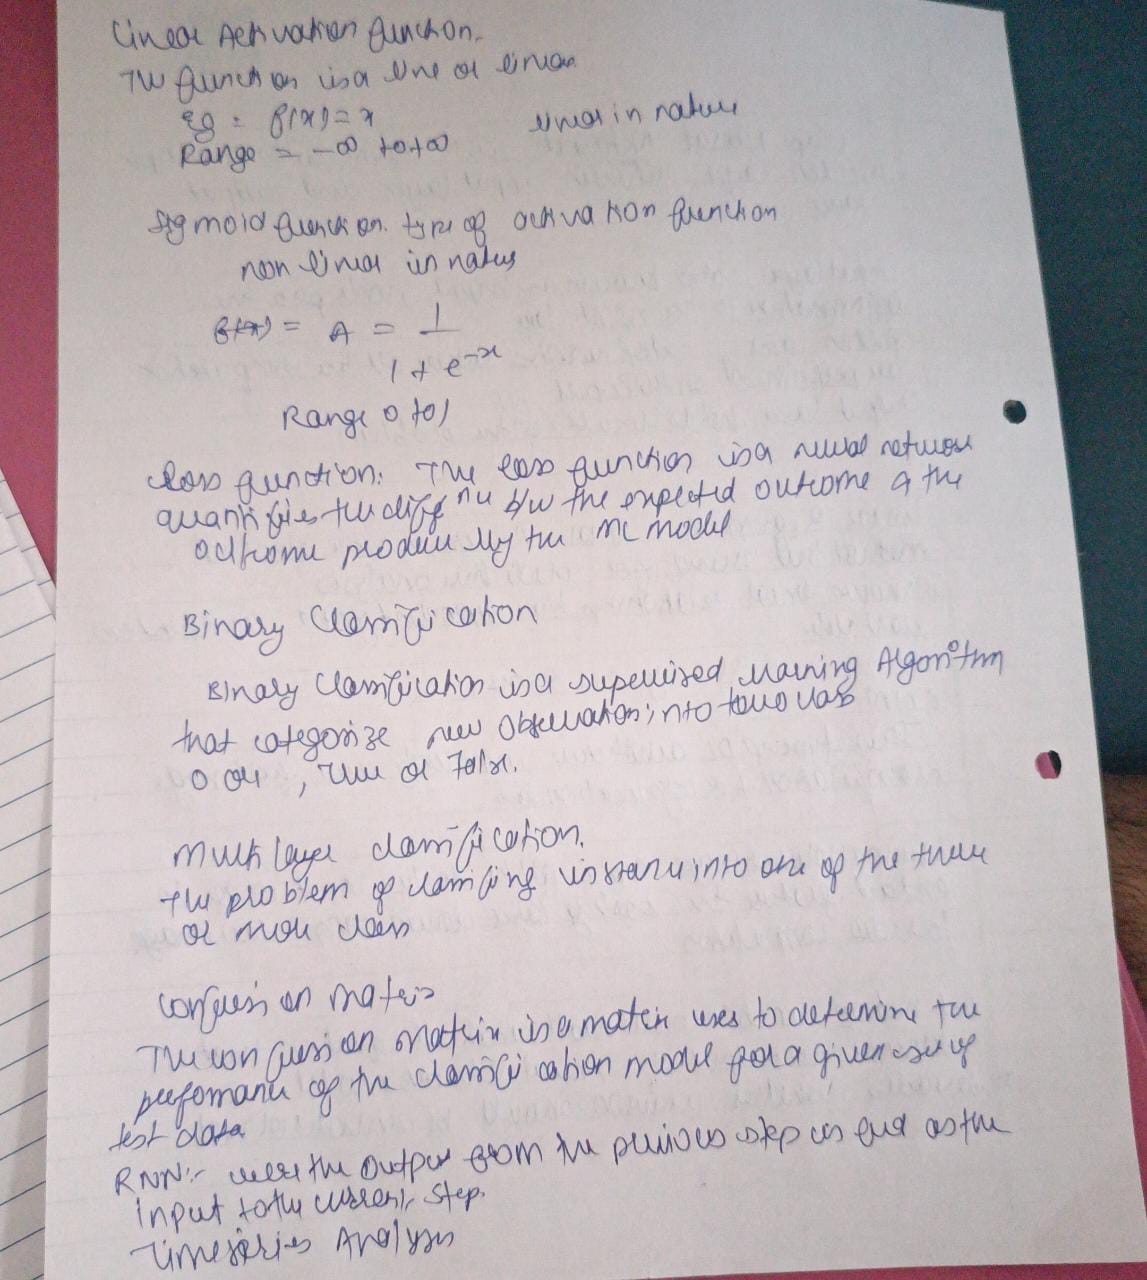 Linear Activation function.
The function is a line or linear
eg: f(x) = x linear in nature
Range = -∞ to +∞
Sigmoid function. type of activation function
non linear in nature
f(x) = A = 1
1 + e^-x
Range 0 to 1
loss function. The loss function is a neural network
quantifies the diff b/w the expected outcome & the
outcome produce by the ML model
Binary Classification
Binary Classification is a supervised learning Algorithm
that categorize new observation into two
0 or 1, True or False.
Multi layer classification.
the problem of classifing instance into one of the three
or more class
Confusion matrix
The confusion matrix is a matrix uses to determine the
perfomance of the classification model for a given set of
test data
RNN:- were the output from the previous step is fed as the
input to the current step.
Timeseries Analysis